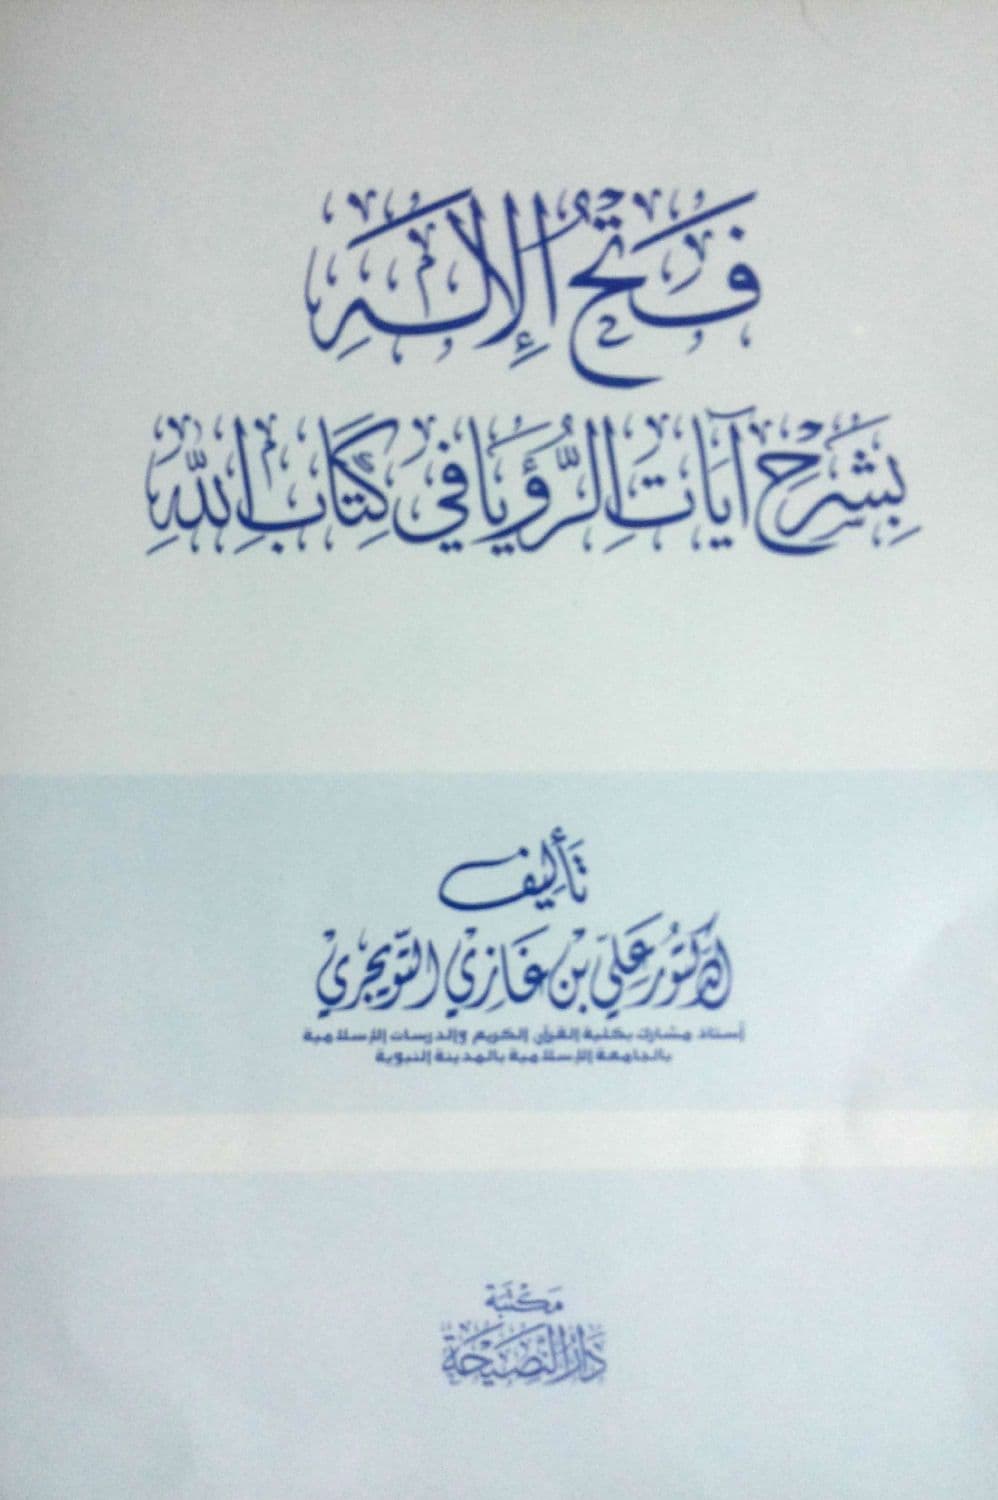 فَتْحُ الإِلَهِ
بِشَرْحِ آيَاتِ الرُّؤْيَا فِي كِتَابِ اللهِ
تَأْلِيف
الدكتور عَلي بن غَازي التّويجري
أستاذ مشارك بكلية القرآن الكريم والدرسات الإسلامية
بالجامعة الإسلامية بالمدينة النبوية
مَكتَبَة
دَارُ النَّصِيحَة